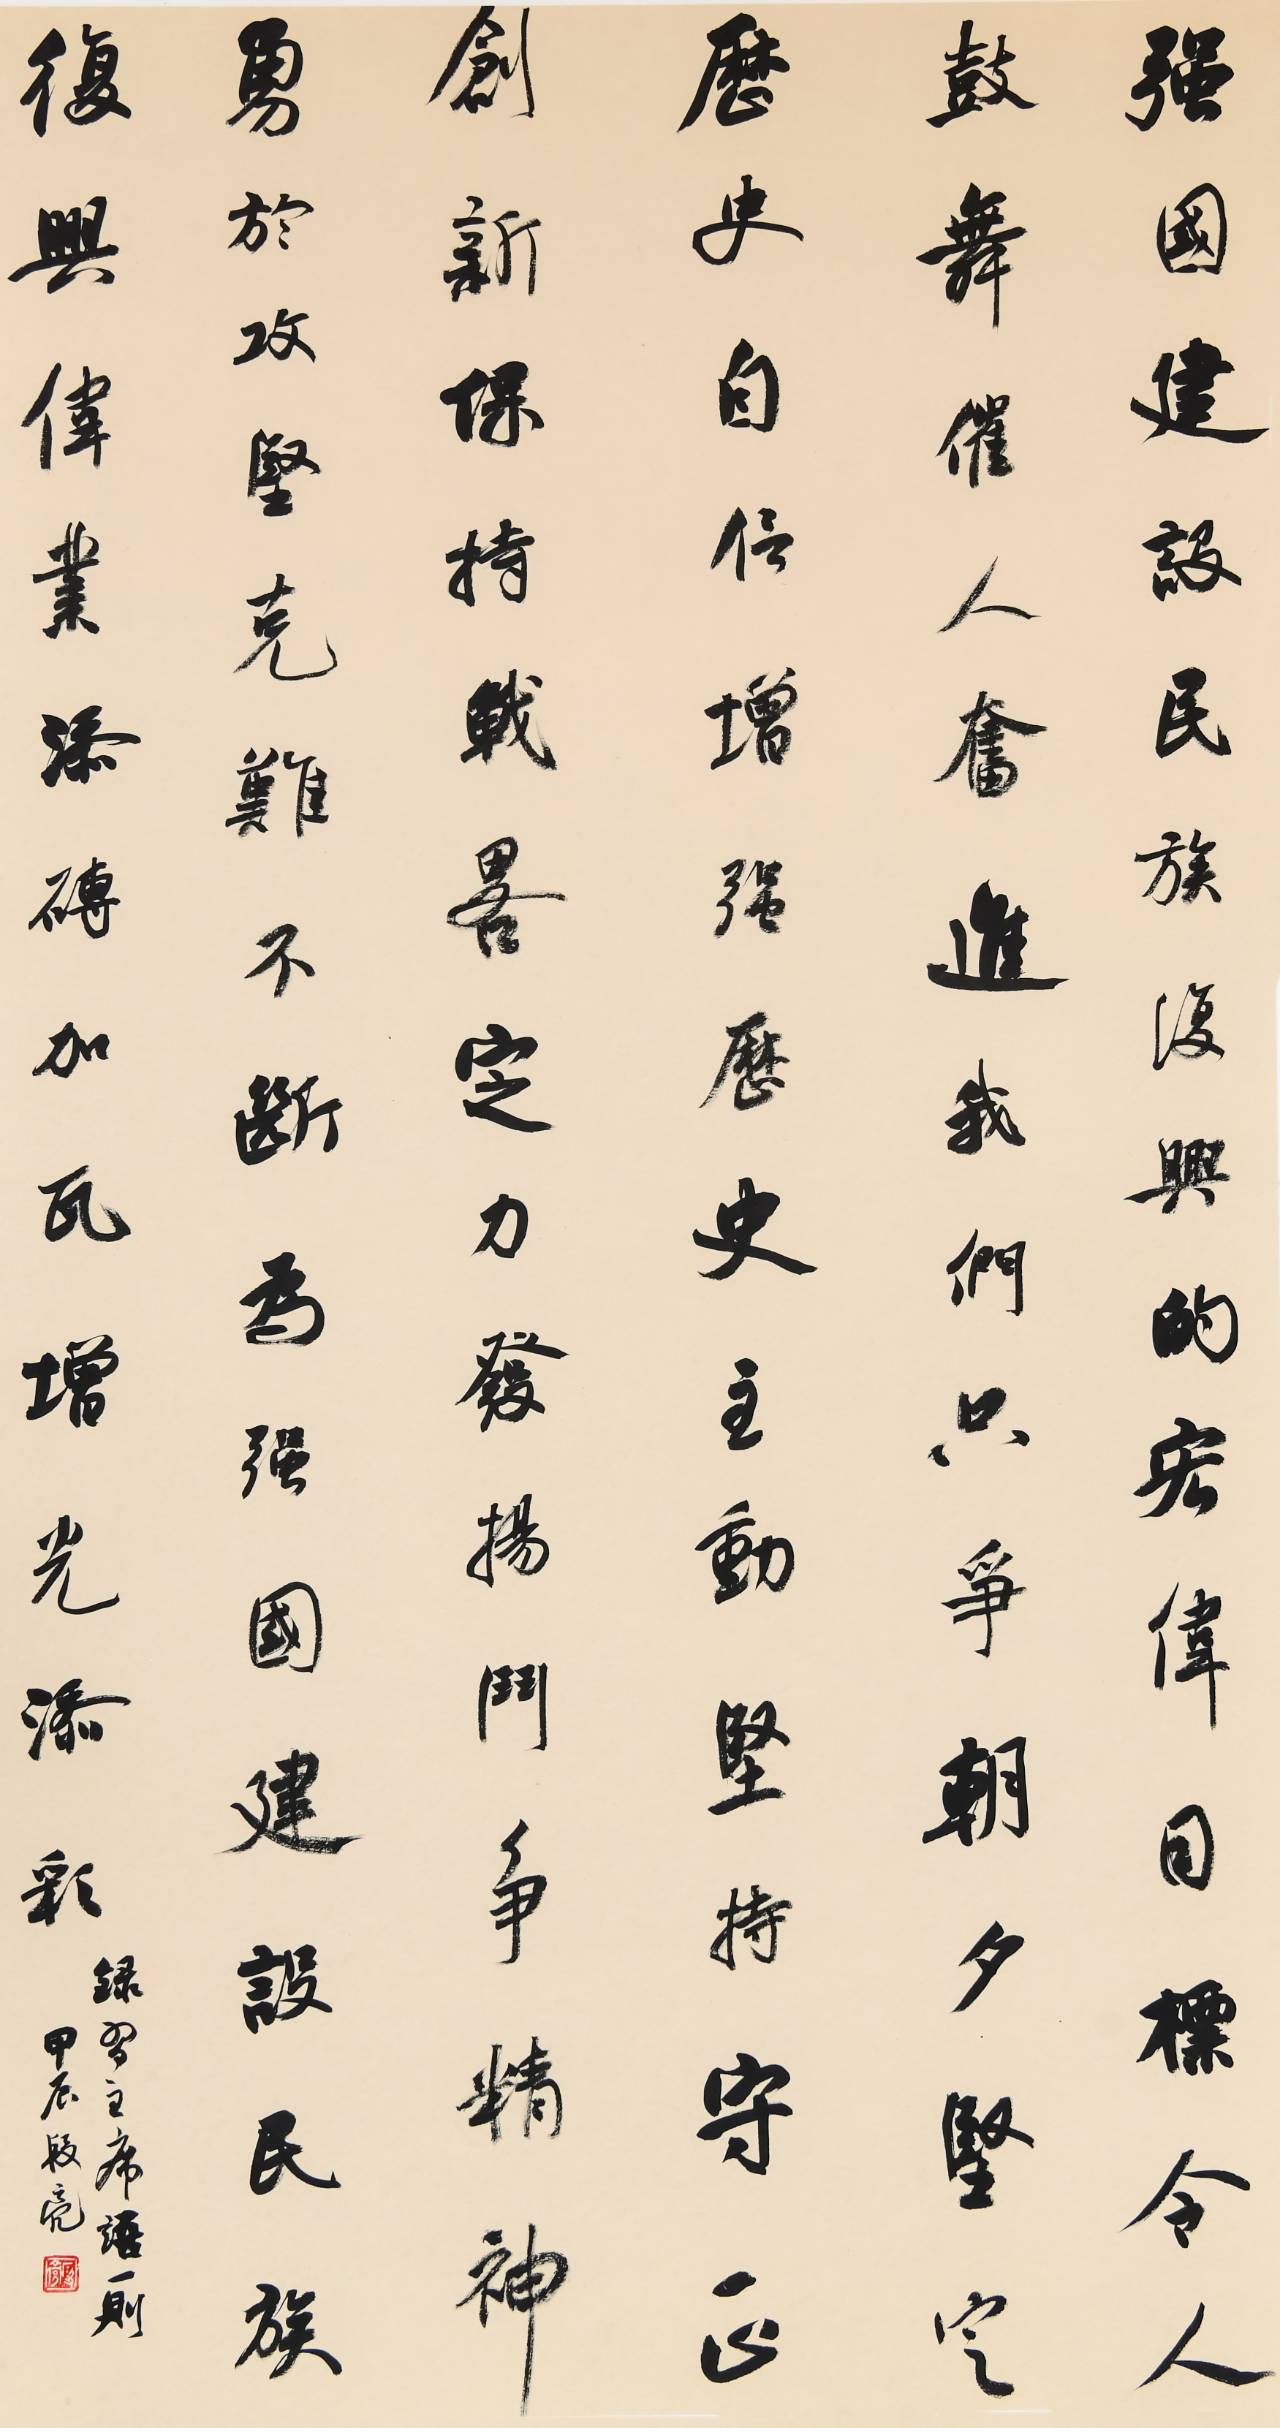 强國建設民族復興的宏偉目標令人
鼓舞催人奮進我們只爭朝夕堅定
歷史自信增强歷史主動堅持守正
創新保持戰畧定力發揚鬥爭精神
勇於攻堅克難不斷為强國建設民族
復興偉業添磚加瓦增光添彩
録習主席語一則
甲辰段亮